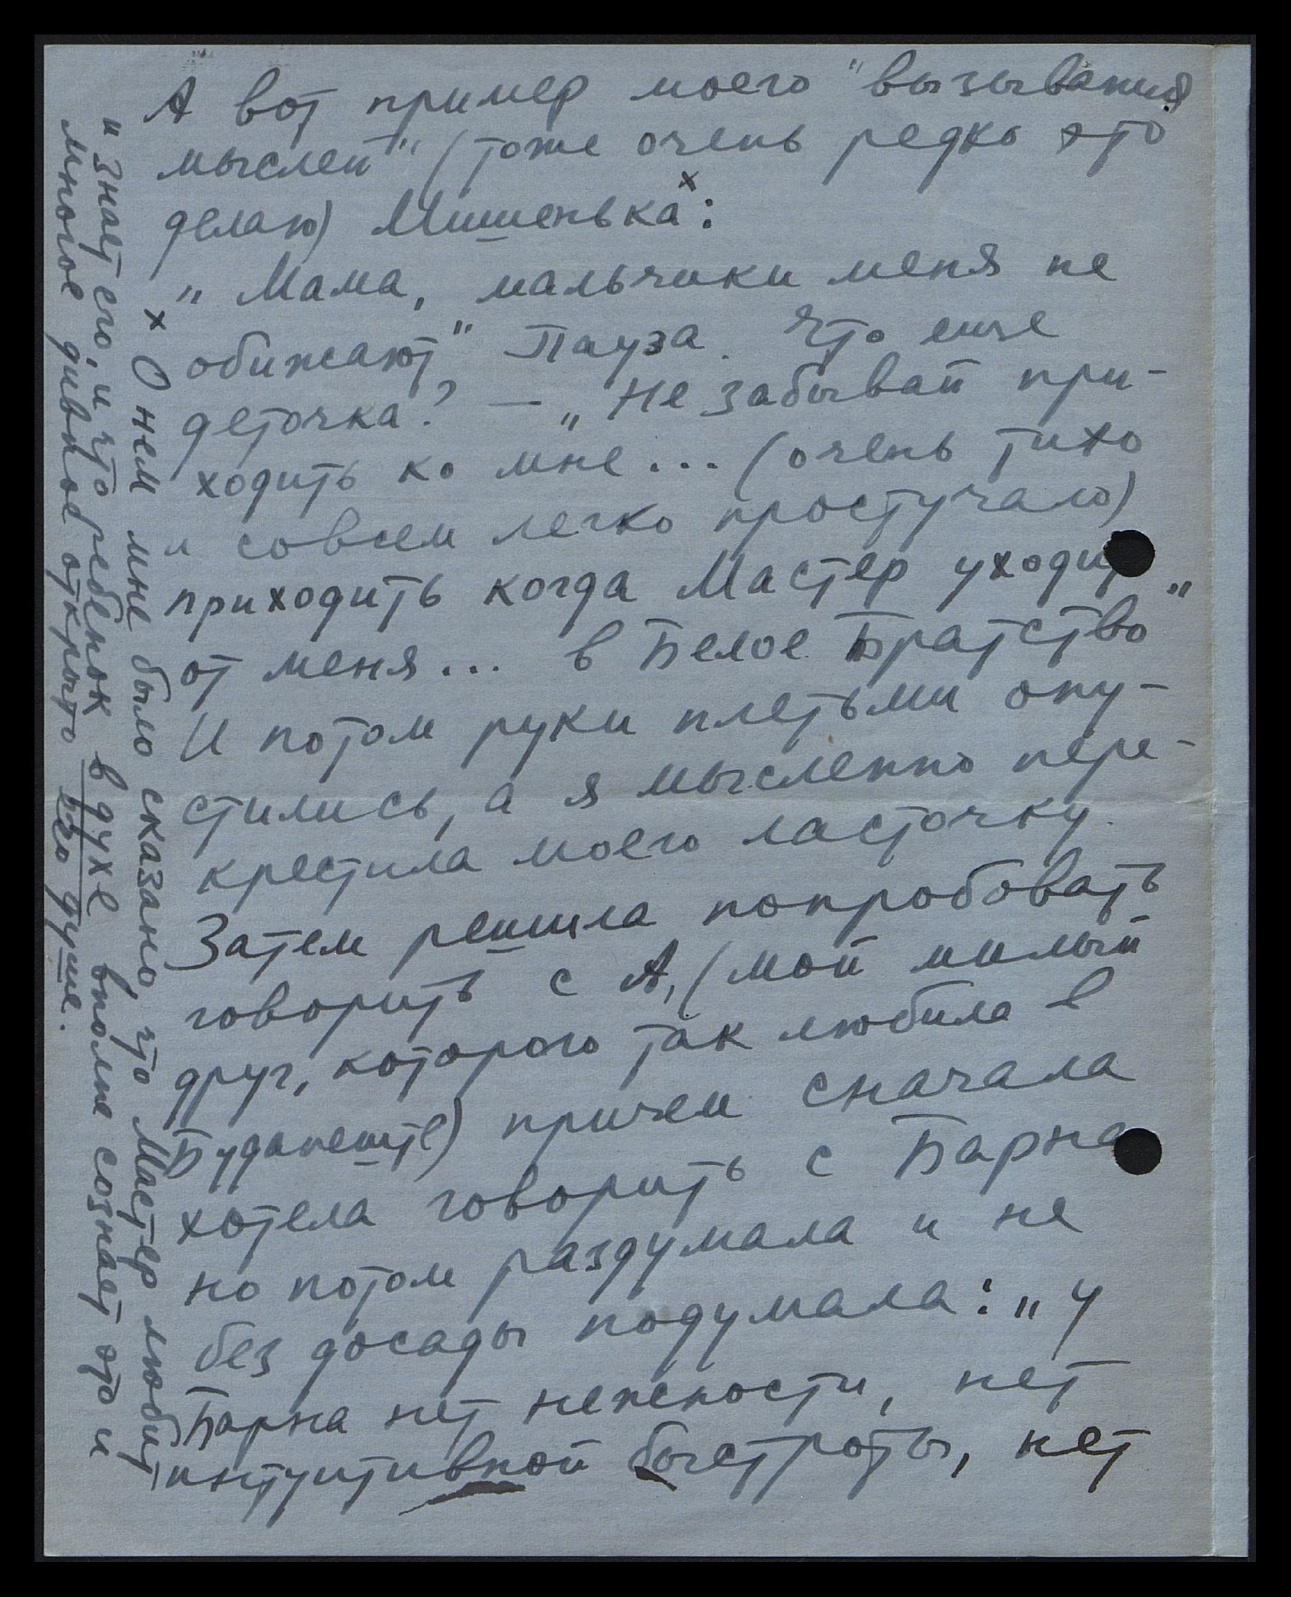 А вот пример моего "вызывания
мыслей" (тоже очень редко это
делаю) Мишенька ˣ:
„Мама, мальчики меня не
обижают" Пауза. Что еще
деточка? — „Не забывай при-
ходить ко мне... (очень тихо
и совсем легко простучало)
приходить когда Мастер уходит
от меня... в Белое Братство"
И потом руки плетьми опу-
стились, а я мысленно пере-
крестила моего ласточку.
Затем решила попробовать
говорить с А, (мой милый
друг, которого так любила в
Будапеште) причем сначала
хотела говорить с Барна
но потом раздумала и не
без досады подумала: „У
Барна нет нежности, нет
интуитивной быстроты, нет
х О нем мне было сказано, что Мастер любит
и знает его, и что ребенок в духе вполне сознает это и
многое дивное открыто его душе.